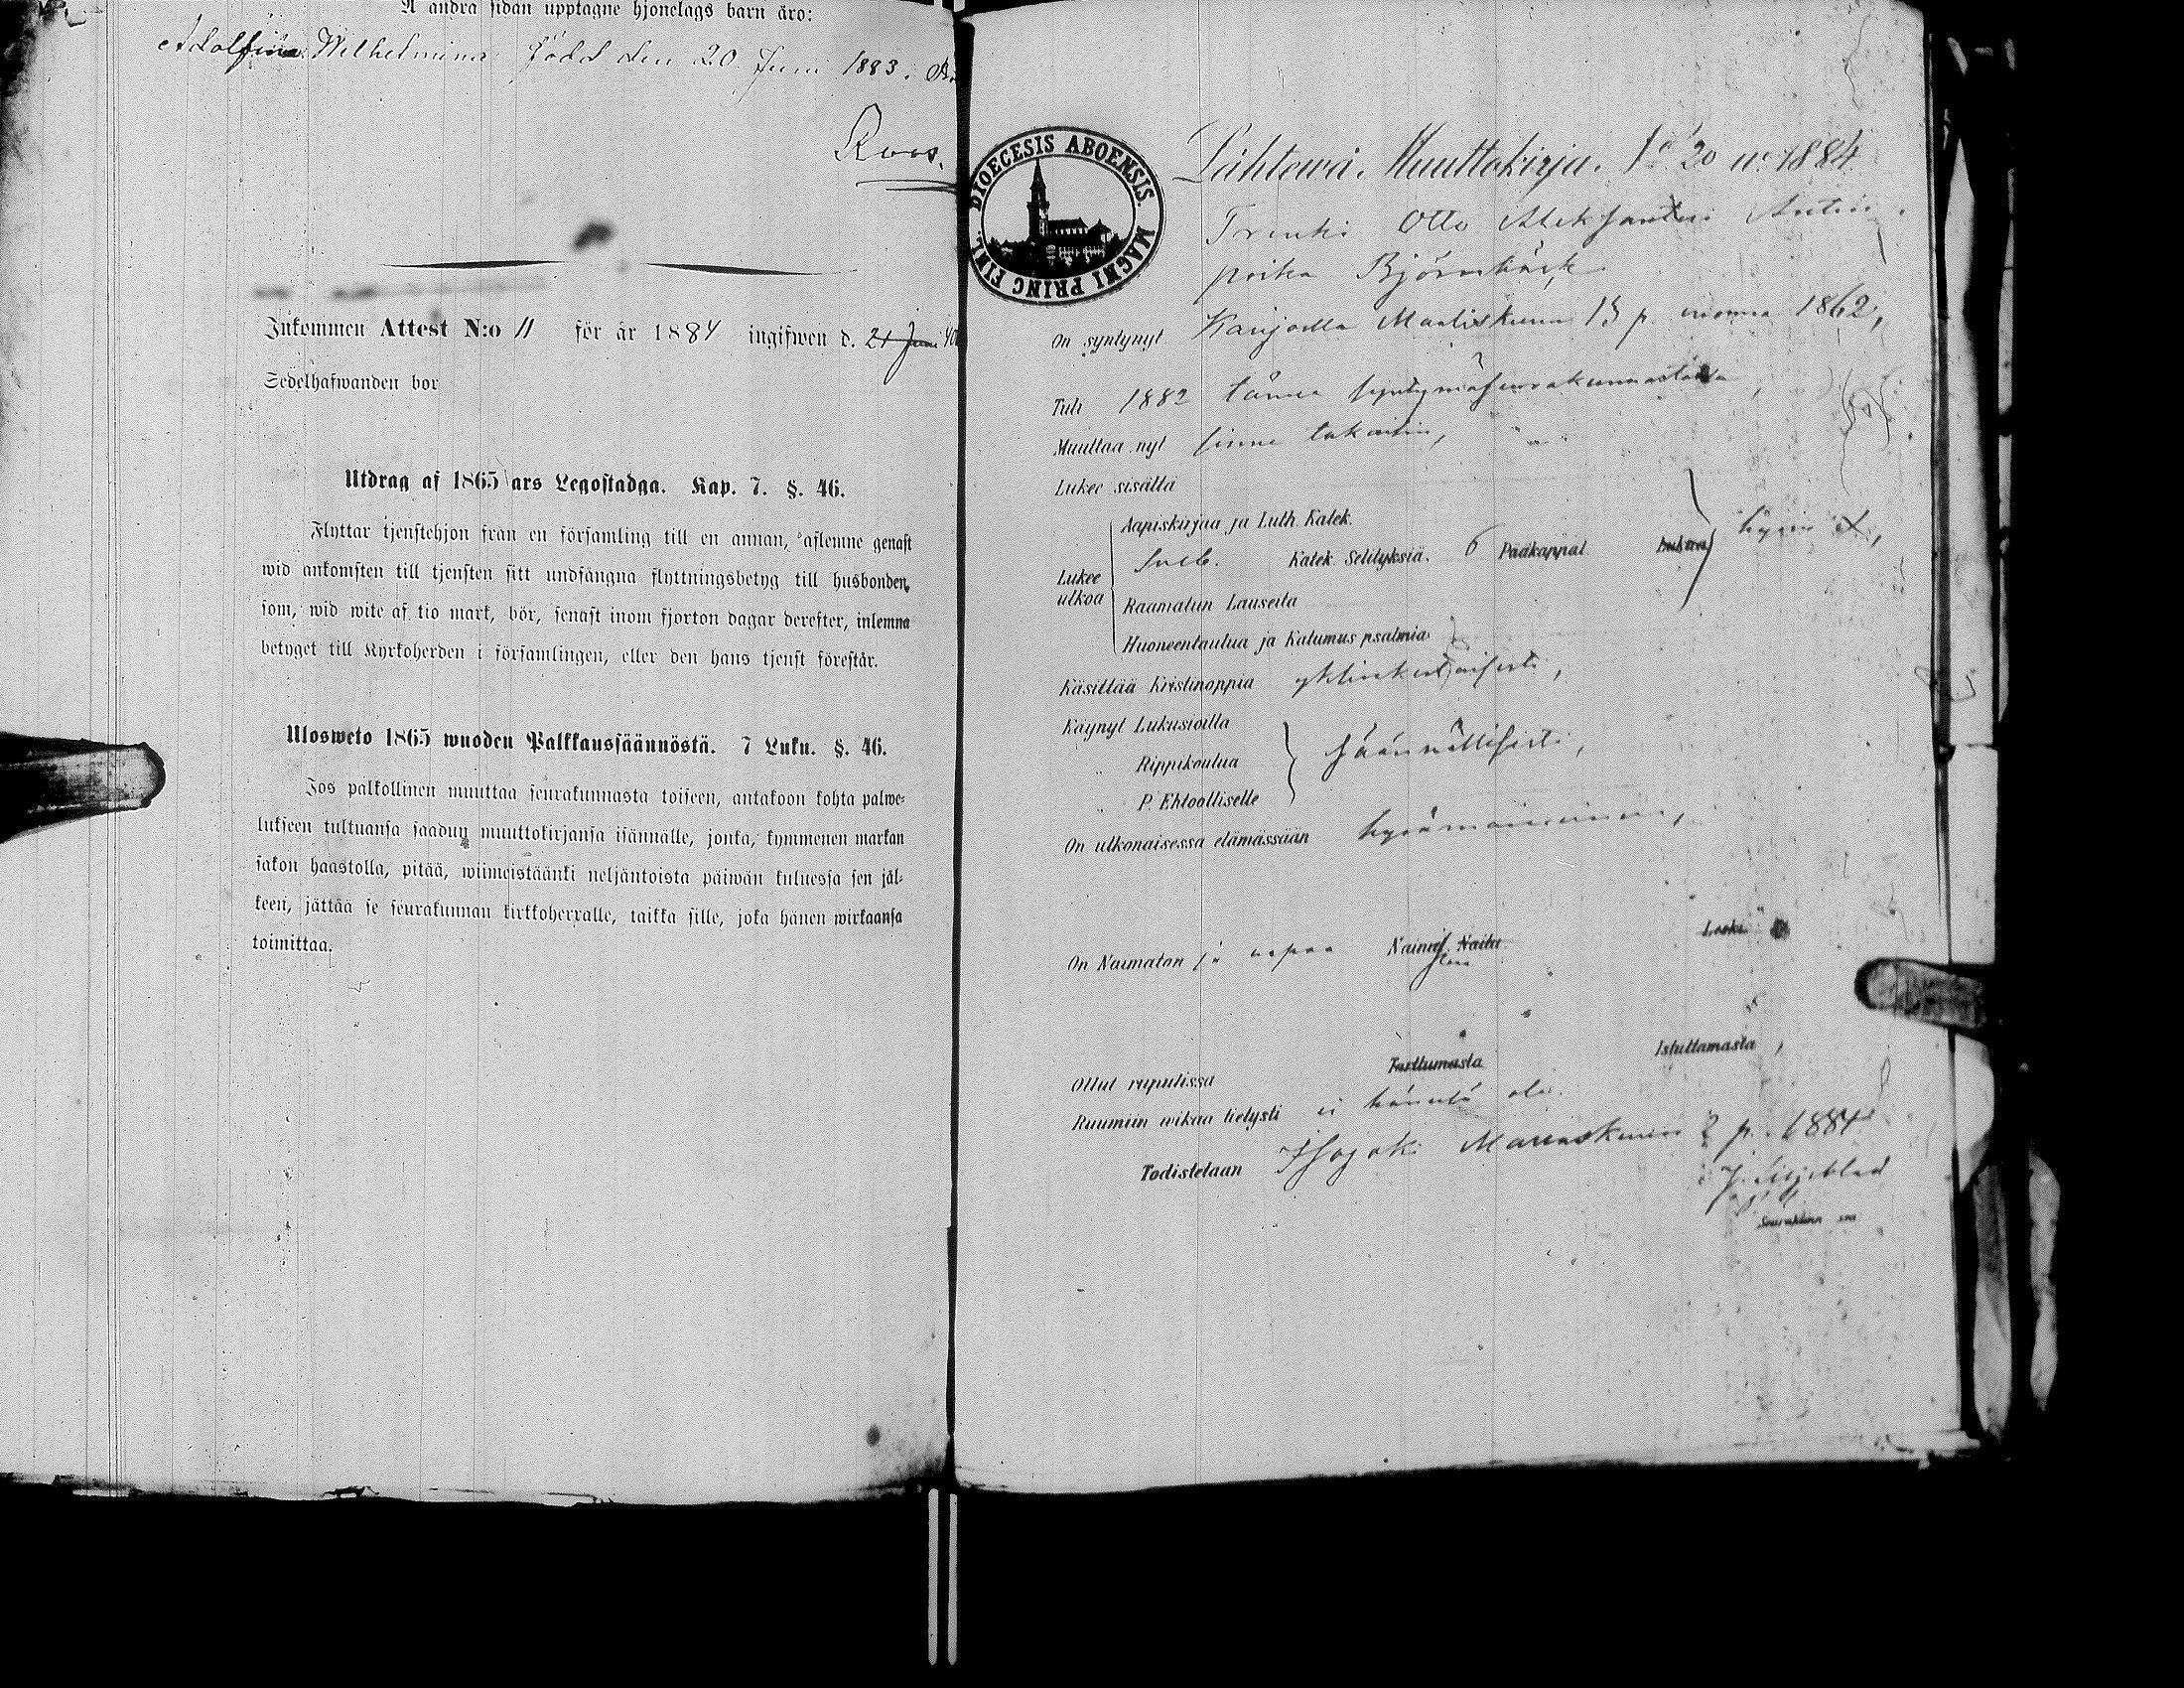 Å andra sidan upptagne hjonelags barn äro:
Adolfina Wilhelmina född den 20 Juni 1883.
Roos.
Inkommen Attest N:o 11 för år 1884 ingifwen d. 21 Juni
Sedelhafwanden bor
Utdrag af 1865 års Legostadga. Kap. 7. §. 46.
Flyttar tjenstehjon från en församling till en annan, aflemne genast
wid ankomsten till tjensten sitt undfångna flyttningsbetyg till husbonden,
som, wid wite af tio mark, bör, senast inom fjorton dagar derefter, inlemna
betyget till Kyrkoherden i församlingen, eller den hans tjenst förestår.
Ulosweto 1865 wuoden Palkkaussäännöstä. 7 Luku. §. 46.
Jos palkollinen muuttaa seurakunnasta toiseen, antakoon kohta palwe-
lukseen tultuansa saadun muuttokirjansa isännälle, jonka, kymmenen markan
sakon haastolla, pitää, wiimeistäänki neljäntoista päiwän kuluessa sen jäl-
keen, jättää se seurakunnan kirkkoherralle, taikka sille, joka hänen wirkaansa
toimittaa.
DIOECESIS ABOENSIS. MAGNI PRINC FINL.
Lähtewä Muuttokirja. No 20 w. 1884
Trenki Otto Aleksanteri Antin
poika Björnbäck
On syntynyt Karijoella Maaliskuun 15 p. vuonna 1862,
Tuli 1882 tänne syntymäseurakunnastansa
Muuttaa nyt sinne takaisin,
Lukee sisältä
Aapiskirjaa ja Luth. Katek.
Lukee ulkoa Sveb. Katek. Selityksiä. 6 Pääkappal. Lukua
Raamatun Lauseita
Huoneentaulua ja Katumus psalmia
Käsittää Kristinoppia yksinkertaisesti,
Käynyt Lukusioilla
" Rippikoulua säännöllisesti,
" P. Ehtoolliselle
On ulkonaisessa elämässään hyvämaineinen,
On Naimaton ja vapaa Naimaan Naitu Leski
Ollut rupulissa Tarttumasta Istuttamasta,
Ruumiin wikaa tietysti ei hänellä ole.
Todistetaan Isojoki Marraskuun 2 p. 1884
J. Liljeblad
Seurakunn